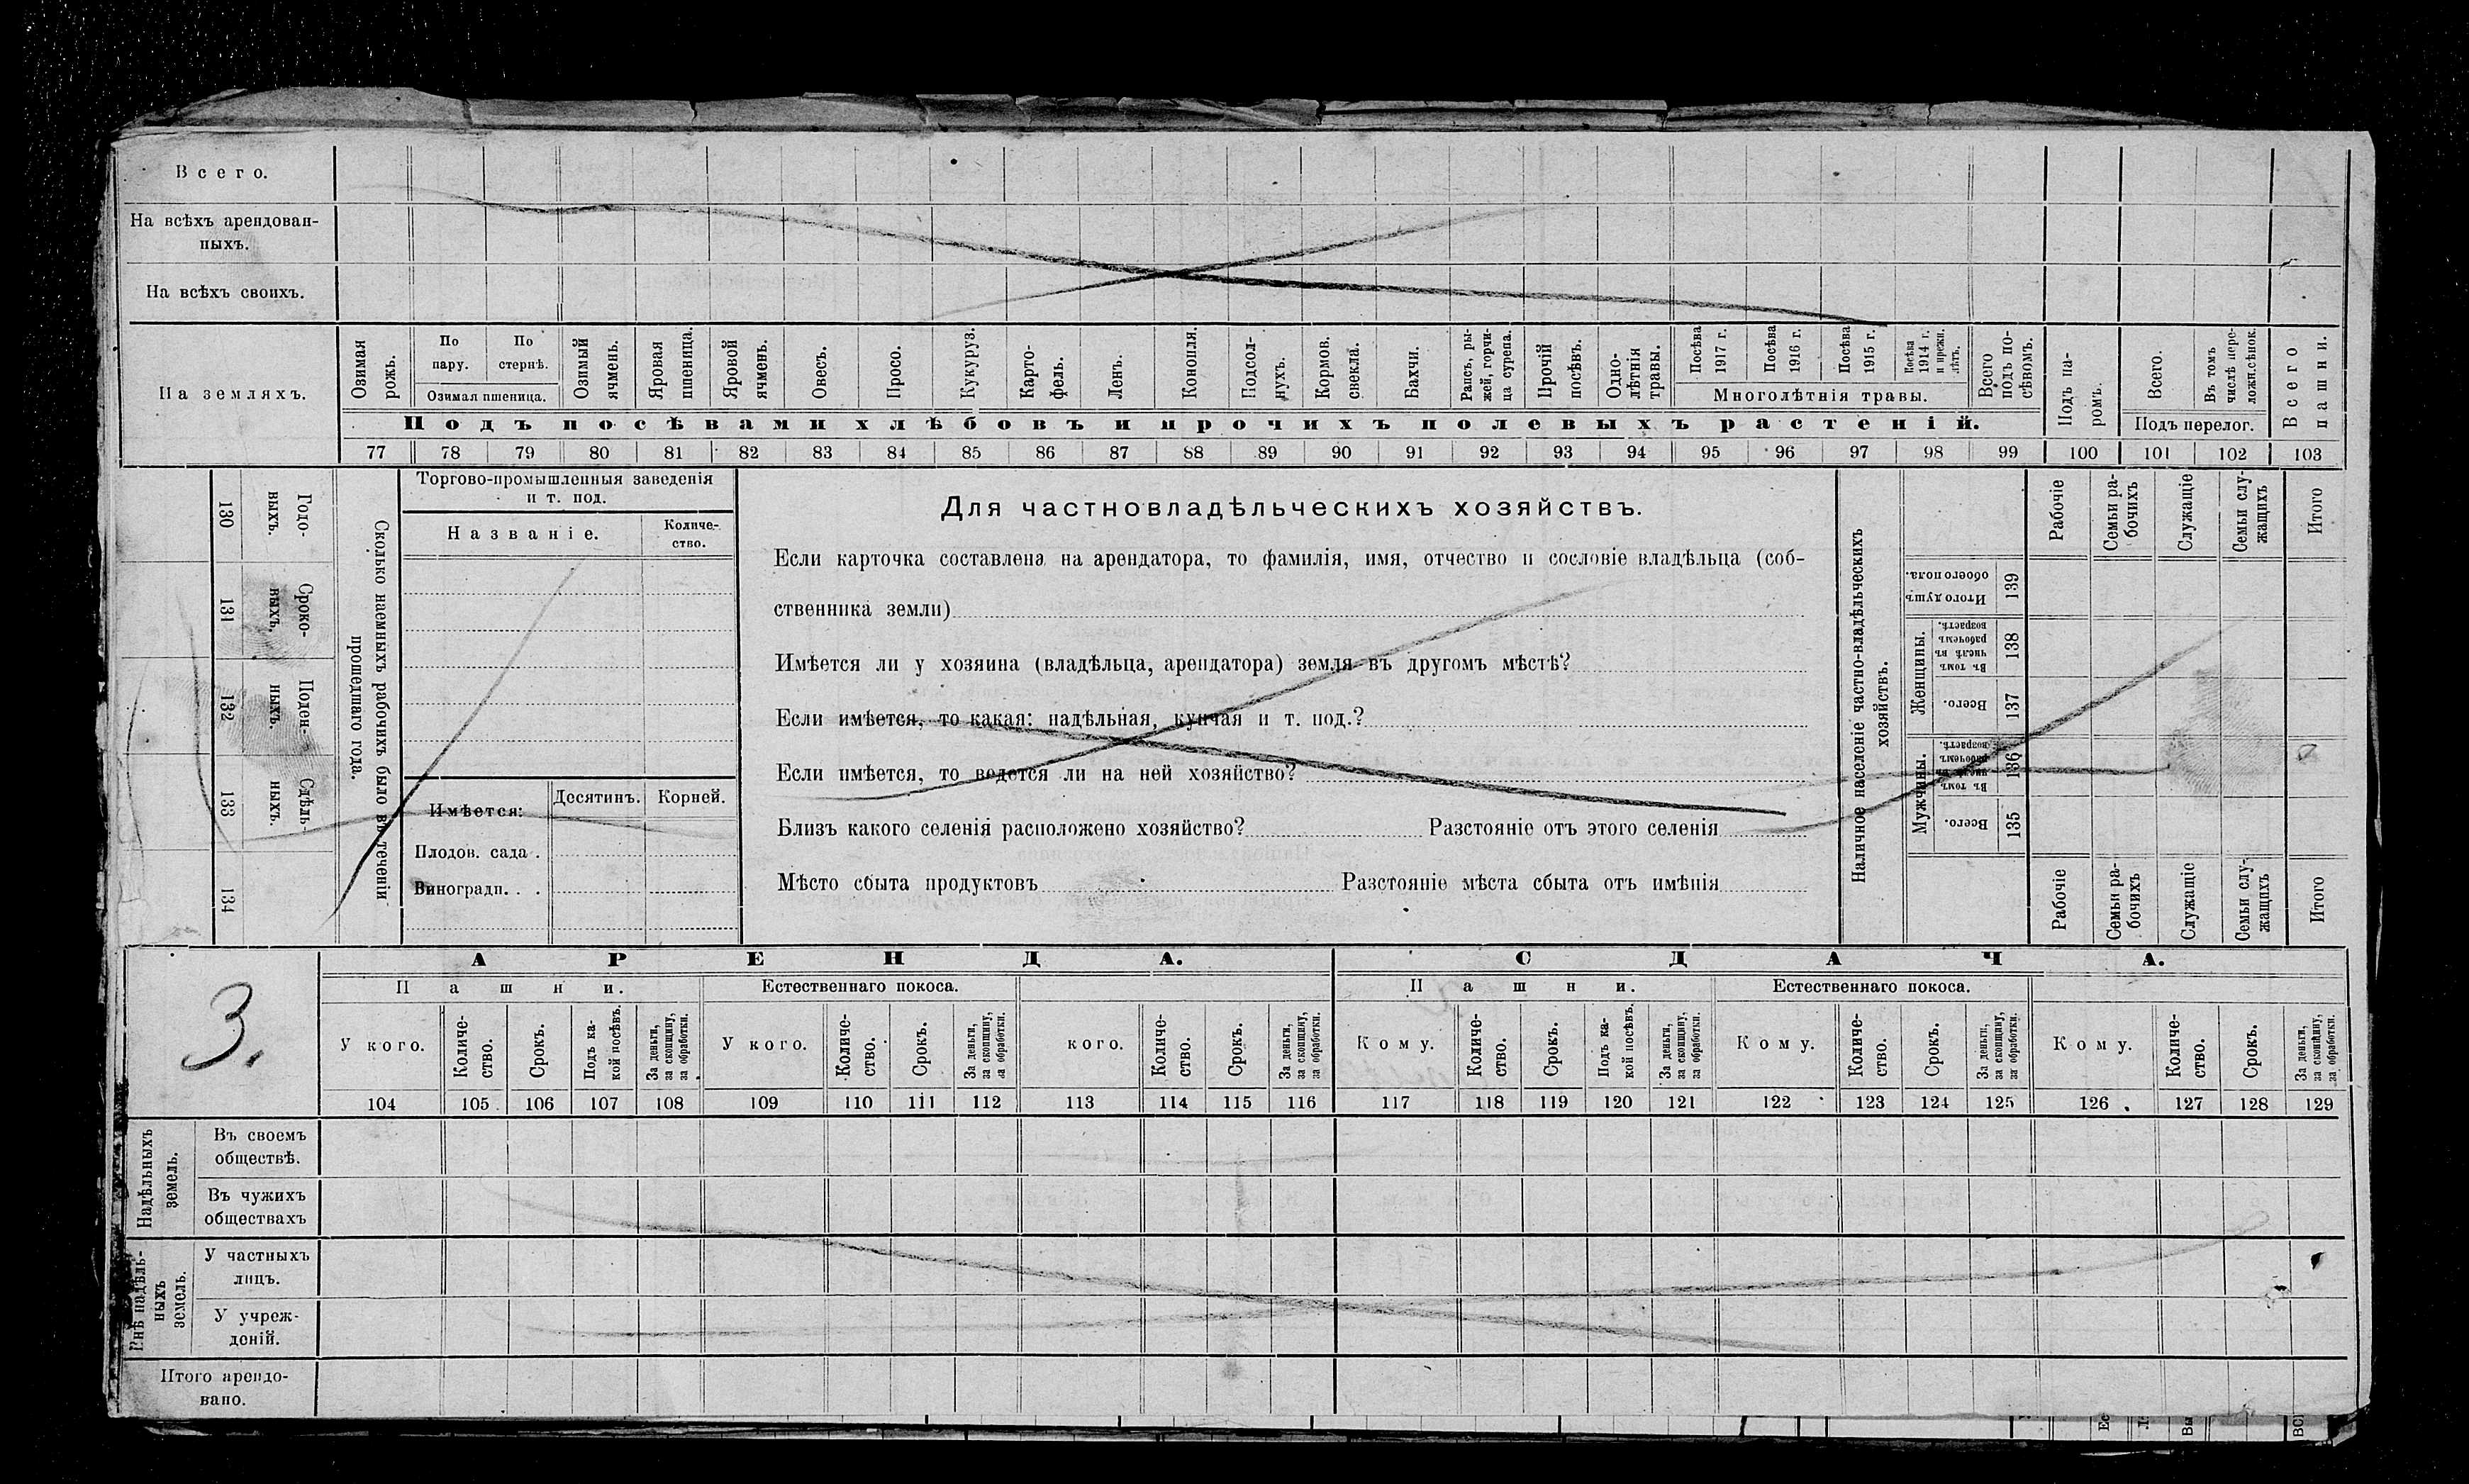 Всего.
На всѣхъ арендован-
ныхъ.
На всѣхъ своихъ.
На земляхъ.
Озимая рожь.
По пару.
По стернѣ.
Озимая пшеница.
Озимый ячмень.
Яровая пшеница.
Яровой ячмень.
Овесъ.
Просо.
Кукуруз.
Карто-
фель.
Ленъ.
Конопля.
Подсол-
нухъ.
Кормов. свекла.
Бахчи.
Рапсъ, ры-
жей, горчи-
ца сурепа.
Прочій посѣвъ.
Одно-
лѣтнія травы.
Посѣва 1917 г.
Посѣва 1916 г.
Посѣва 1915 г.
Посѣва 1914 г. и прежн. лѣтъ.
Многолѣтнія травы.
Всего подъ по-
сѣвомъ.
Подъ па-
ромъ.
Всего.
Въ томъ числѣ пере-
ложн. сѣнок.
Подъ перелог.
Всего пашни.
Подъ посѣвами хлѣбовъ и прочихъ полевыхъ растеній.
77 78 79 80 81 82 83 84 85 86 87 88 89 90 91 92 93 94 95 96 97 98 99 100 101 102 103
Сколько наемныхъ рабочихъ было въ теченіи
прошедшаго года.
Годо-
ныхъ.
130
Сроко-
ныхъ.
131
Поден-
ныхъ.
132
Сдѣль-
ныхъ.
133
134
Торгово-промышленныя заведенія
и т. под.
Названіе.
Количе-
ство.
Имѣется:
Десятинъ.
Корней.
Плодов. сада .
Виноградн. . .
Для частновладѣльческихъ хозяйствъ.
Если карточка составлена на арендатора, то фамилія, имя, отчество и сословіе владѣльца (соб-
ственника земли)
Имѣется ли у хозяина (владѣльца, арендатора) земля въ другомъ мѣстѣ?
Если имѣется, то какая: надѣльная, купчая и т. под.?
Если имѣется, то ведется ли на ней хозяйство?
Близъ какого селенія расположено хозяйство? Разстояніе отъ этого селенія
Мѣсто сбыта продуктовъ Разстояніе мѣста сбыта отъ имѣнія
Наличное населеніе частно-владѣльческихъ
хозяйствъ.
Рабочіе
Семьи ра-
бочихъ
Служащіе
Семьи слу-
жащихъ
Итого
Итого душъ
обоего пола.
139
Женщины.
Въ томъ числѣ въ рабочемъ возрастѣ.
138
Всего.
137
Мужчины.
Въ томъ числѣ въ рабочемъ возрастѣ.
136
Всего.
135
Рабочіе
Семьи ра-
бочихъ
Служащіе
Семьи слу-
жащихъ
Итого
3.
АРЕНДА.
СДАЧА.
Пашни.
Естественнаго покоса.
Пашни.
Естественнаго покоса.
У кого.
Количе-
ство.
Срокъ.
Подъ ка-
кой посѣвъ.
За деньги, за скопщину, за обработки.
У кого.
Количе-
ство.
Срокъ.
За деньги, за скопщину, за обработки.
кого.
Количе-
ство.
Срокъ.
За деньги, за скопщину, за обработки.
Кому.
Количе-
ство.
Срокъ.
Подъ ка-
кой посѣвъ.
За деньги, за скопщину, за обработки.
Кому.
Количе-
ство.
Срокъ.
За деньги, за скопщину, за обработки.
Кому.
Количе-
ство.
Срокъ.
За деньги, за скопщину, за обработки.
104 105 106 107 108 109 110 111 112 113 114 115 116 117 118 119 120 121 122 123 124 125 126 127 128 129
Надѣльныхъ
земель.
Въ своемъ
обществѣ.
Въ чужихъ
обществахъ
Внѣ надѣль-
ныхъ
земель.
У частныхъ
лицъ.
У учреж-
деній.
Итого арендо-
вано.